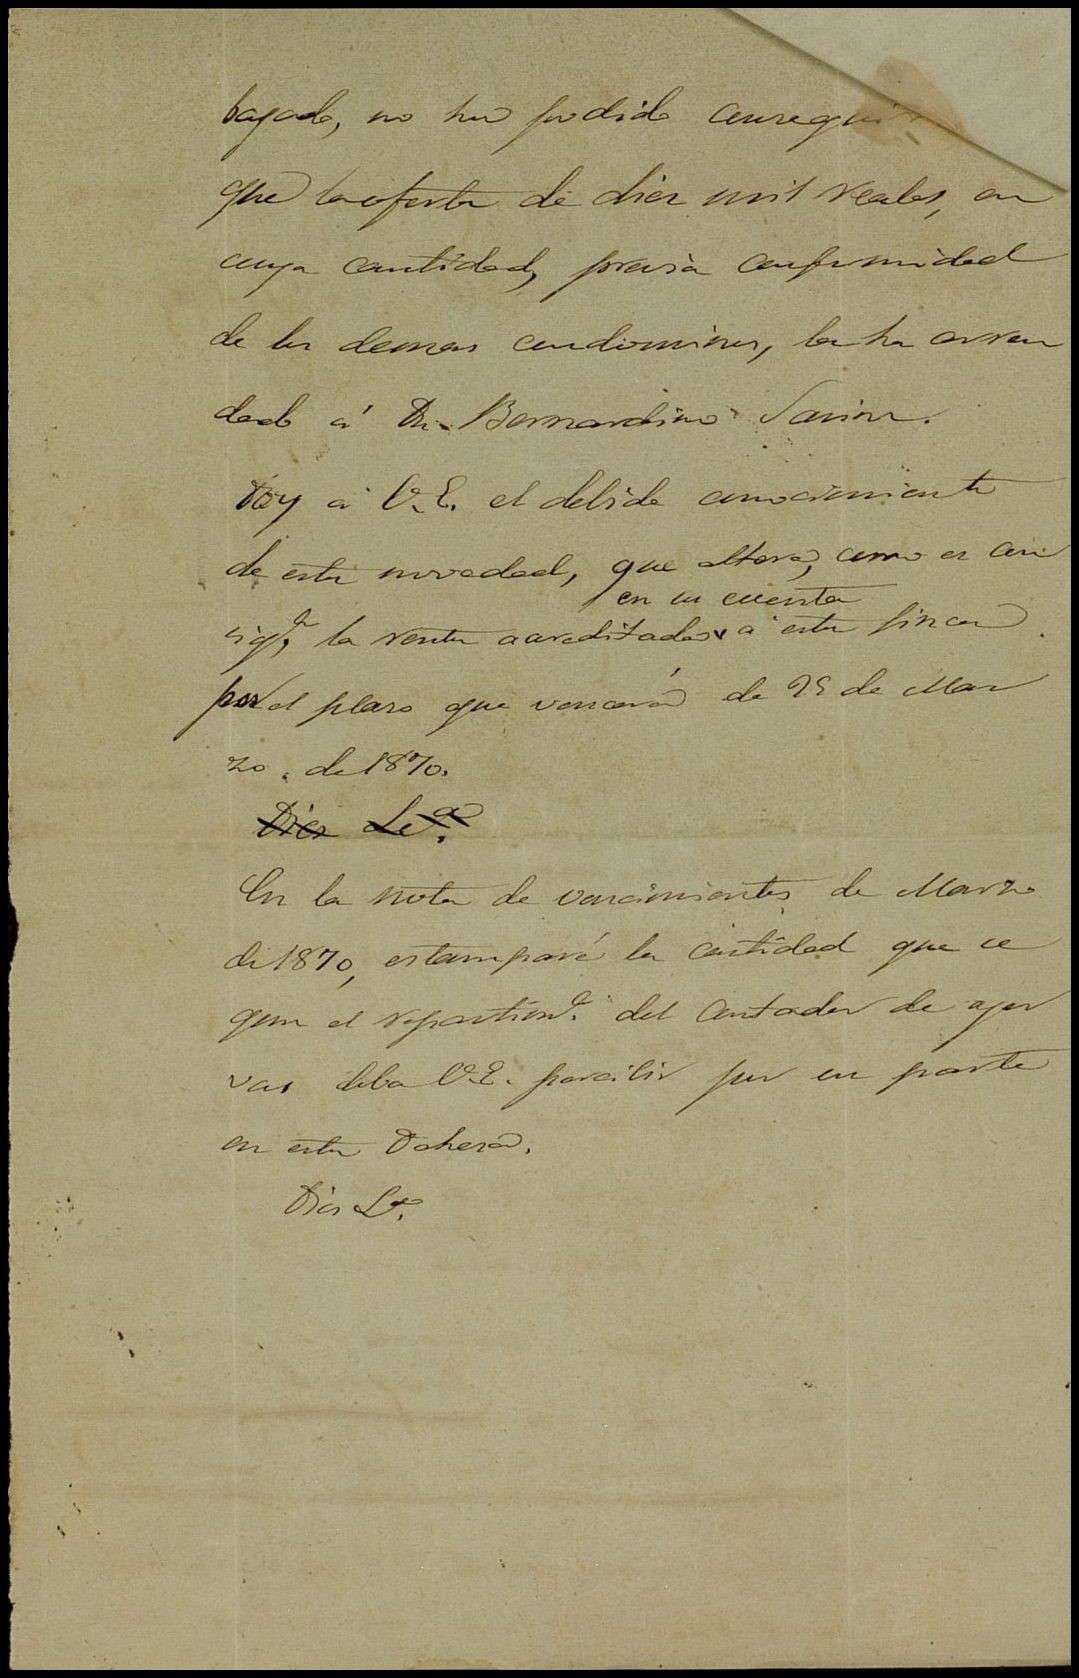 bajado, no ha podido conseguir
que la oferta de diez mil reales, en
cuya cantidad, previa conformidad
de los demas condominos, la ha arren
dado á Dn. Bernardino
Doy á V.E. el debido conocimiento
de esta novedad, que altera, como es con
sigte, la renta acreditada en su cuenta á esta finca
por el plazo que vencerá de 25 de Mar
zo de 1870.
Dios Le. a
En la nota de vencimientos de Marzo
de 1870, estamparé la cantidad que se
gun el repartimto. del Contador de yer
vas deba V.E. percibir por su parte
en esta Dehesa.
Dios Le.